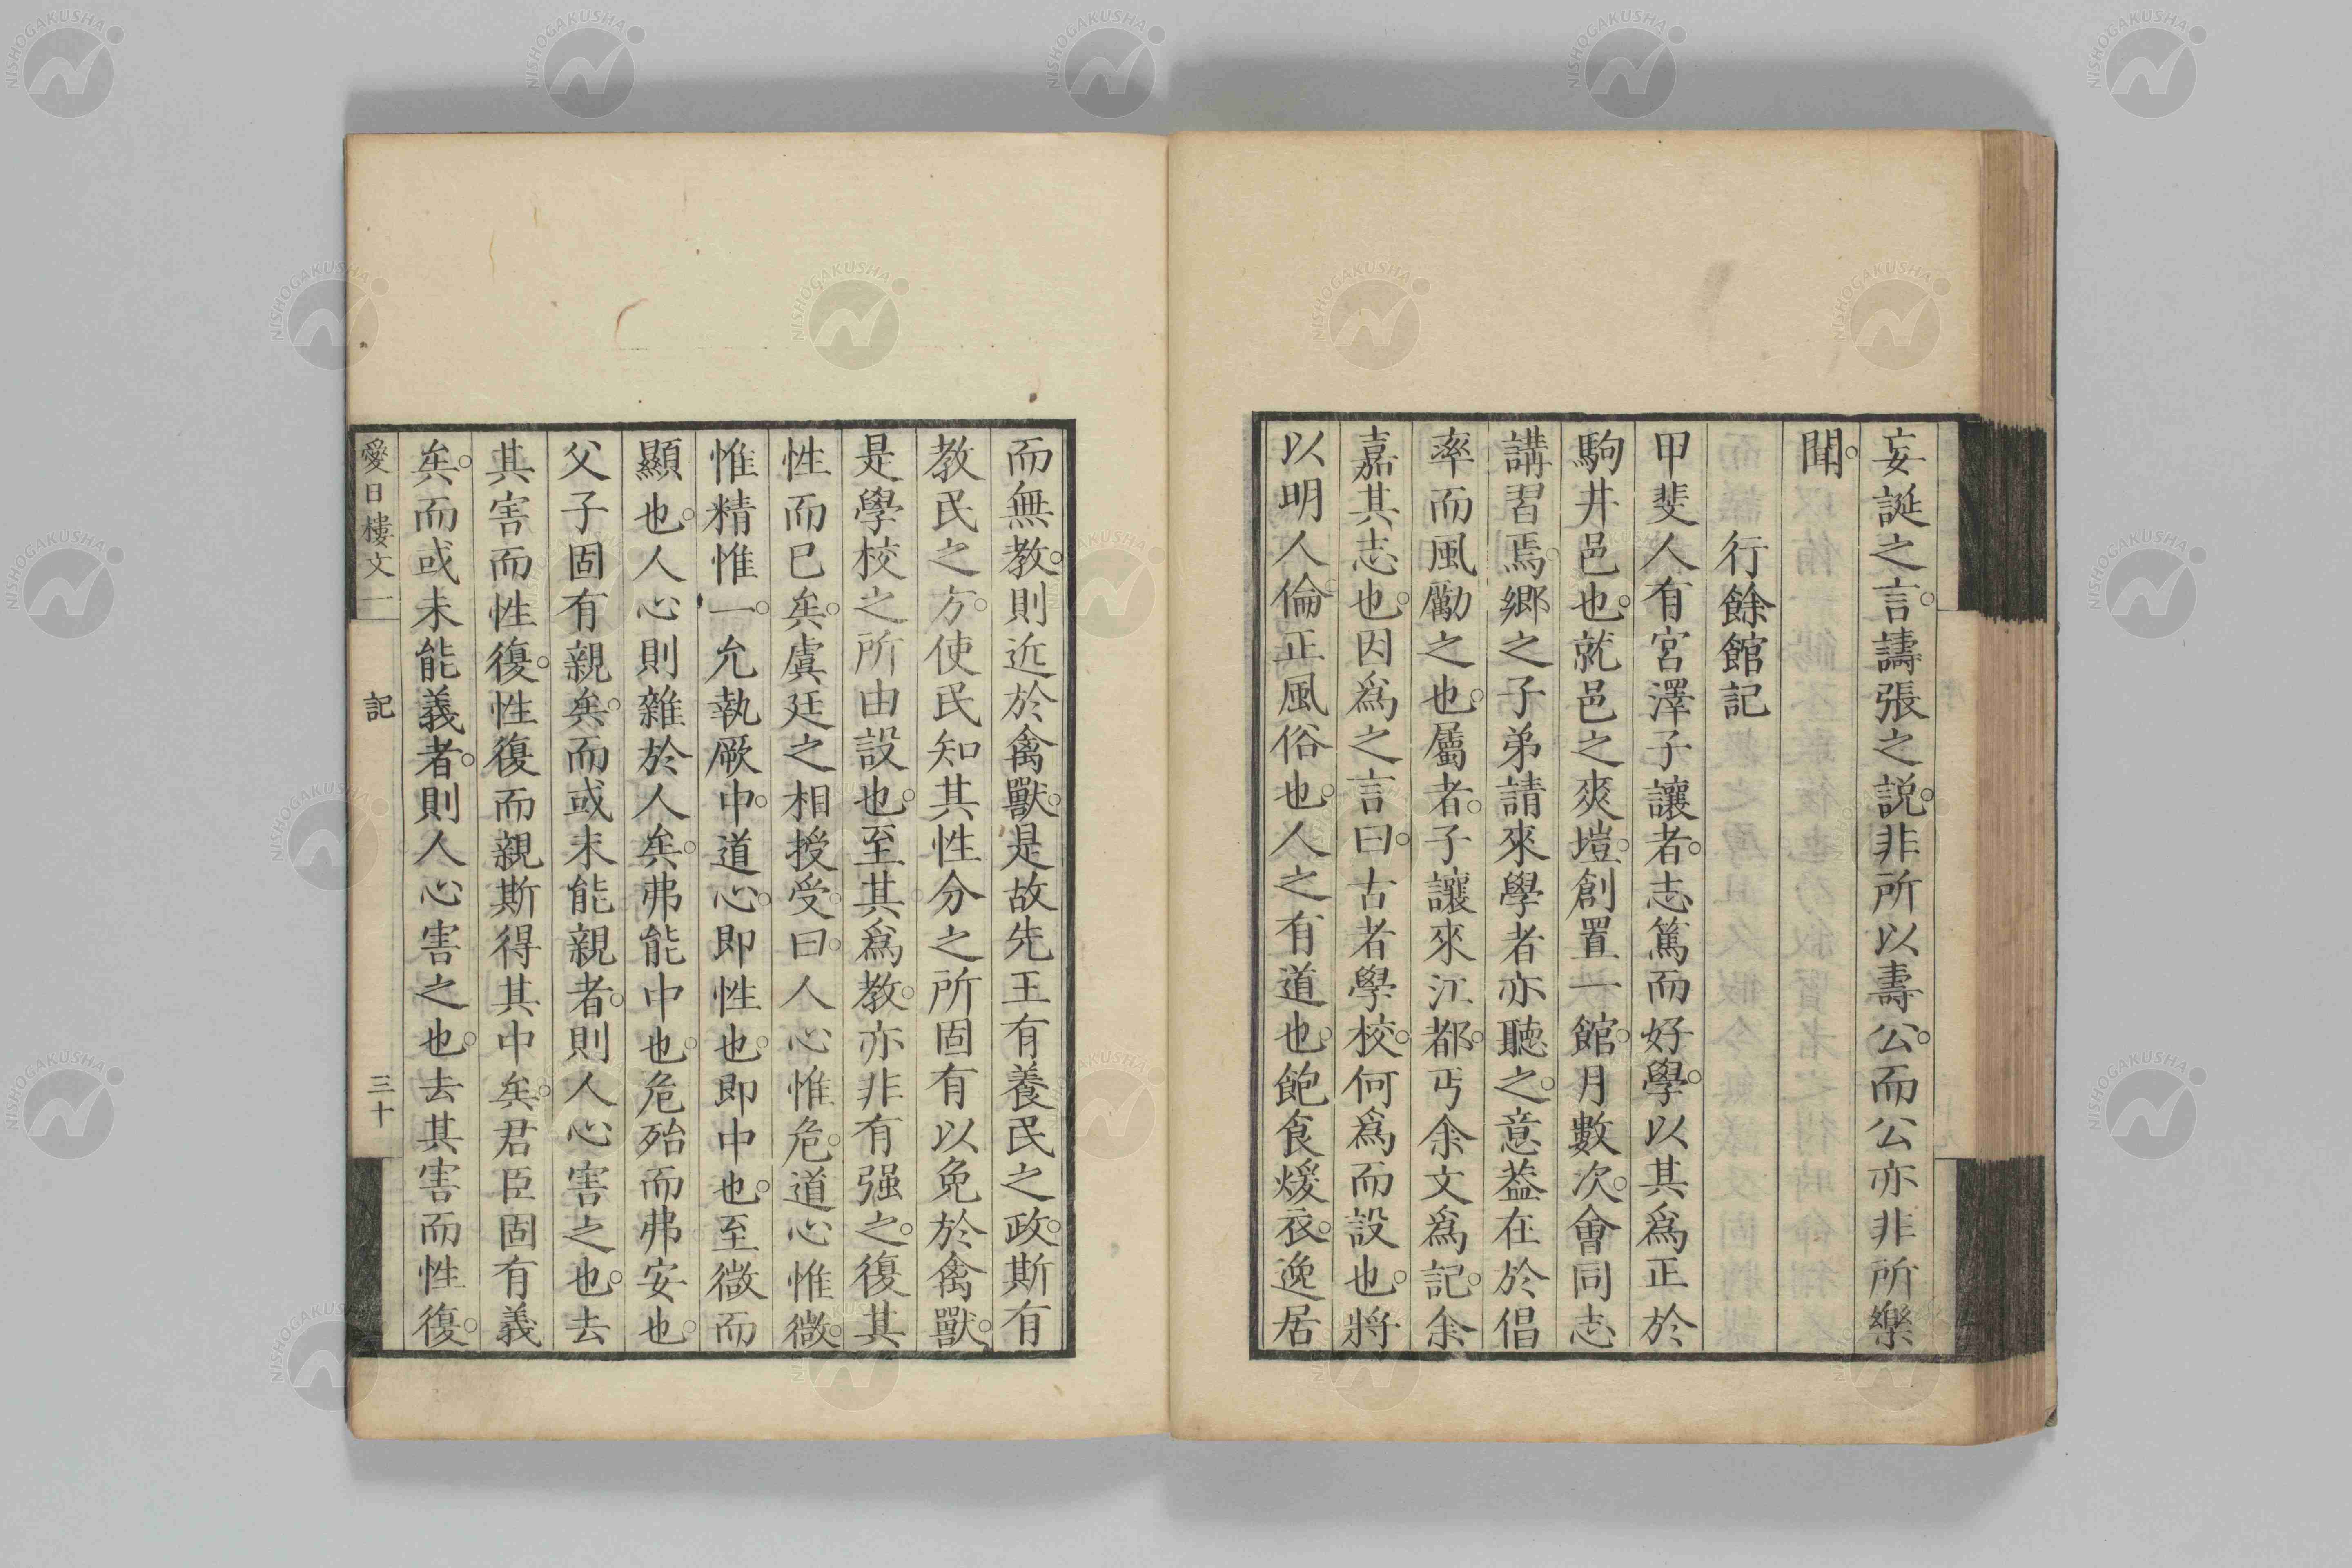 妄誕之言。譸張之説。非所以壽公。而公亦非所樂
聞。
行餘館記
甲斐人有宮澤子讓者。志篤而好學。以其爲正於
駒井邑也。就邑之爽塏。創置一館。月數次。會同志
講習焉。鄉之子弟請來學者亦聽之。意葢在於倡
率而風勵之也。屬者。子讓來江都。丐余文爲記。余
嘉其志也。因爲之言曰。古者學校。何爲而設也。將
以明人倫。正風俗也。人之有道也。飽食煖衣。逸居
而無教。則近於禽獸。是故先王有養民之政。斯有
教民之方。使民知其性分之所固有以免於禽獸。
是學校之所由設也。至其爲教。亦非有强之。復其
性而已矣。虞廷之相授受。曰。人心惟危。道心惟微。
惟精惟一。允執厥中。道心。即性也。即中也。至微而
顯也。人心則雜於人矣。弗能中也。危殆而弗安也。
父子固有親矣。而或未能親者。則人心害之也。去
其害而性復。性復而親斯得其中矣。君臣固有義
矣。而或未能義者。則人心害之也。去其害而性復。
愛日樓文一 記 三十
NISHOGAKUSHA